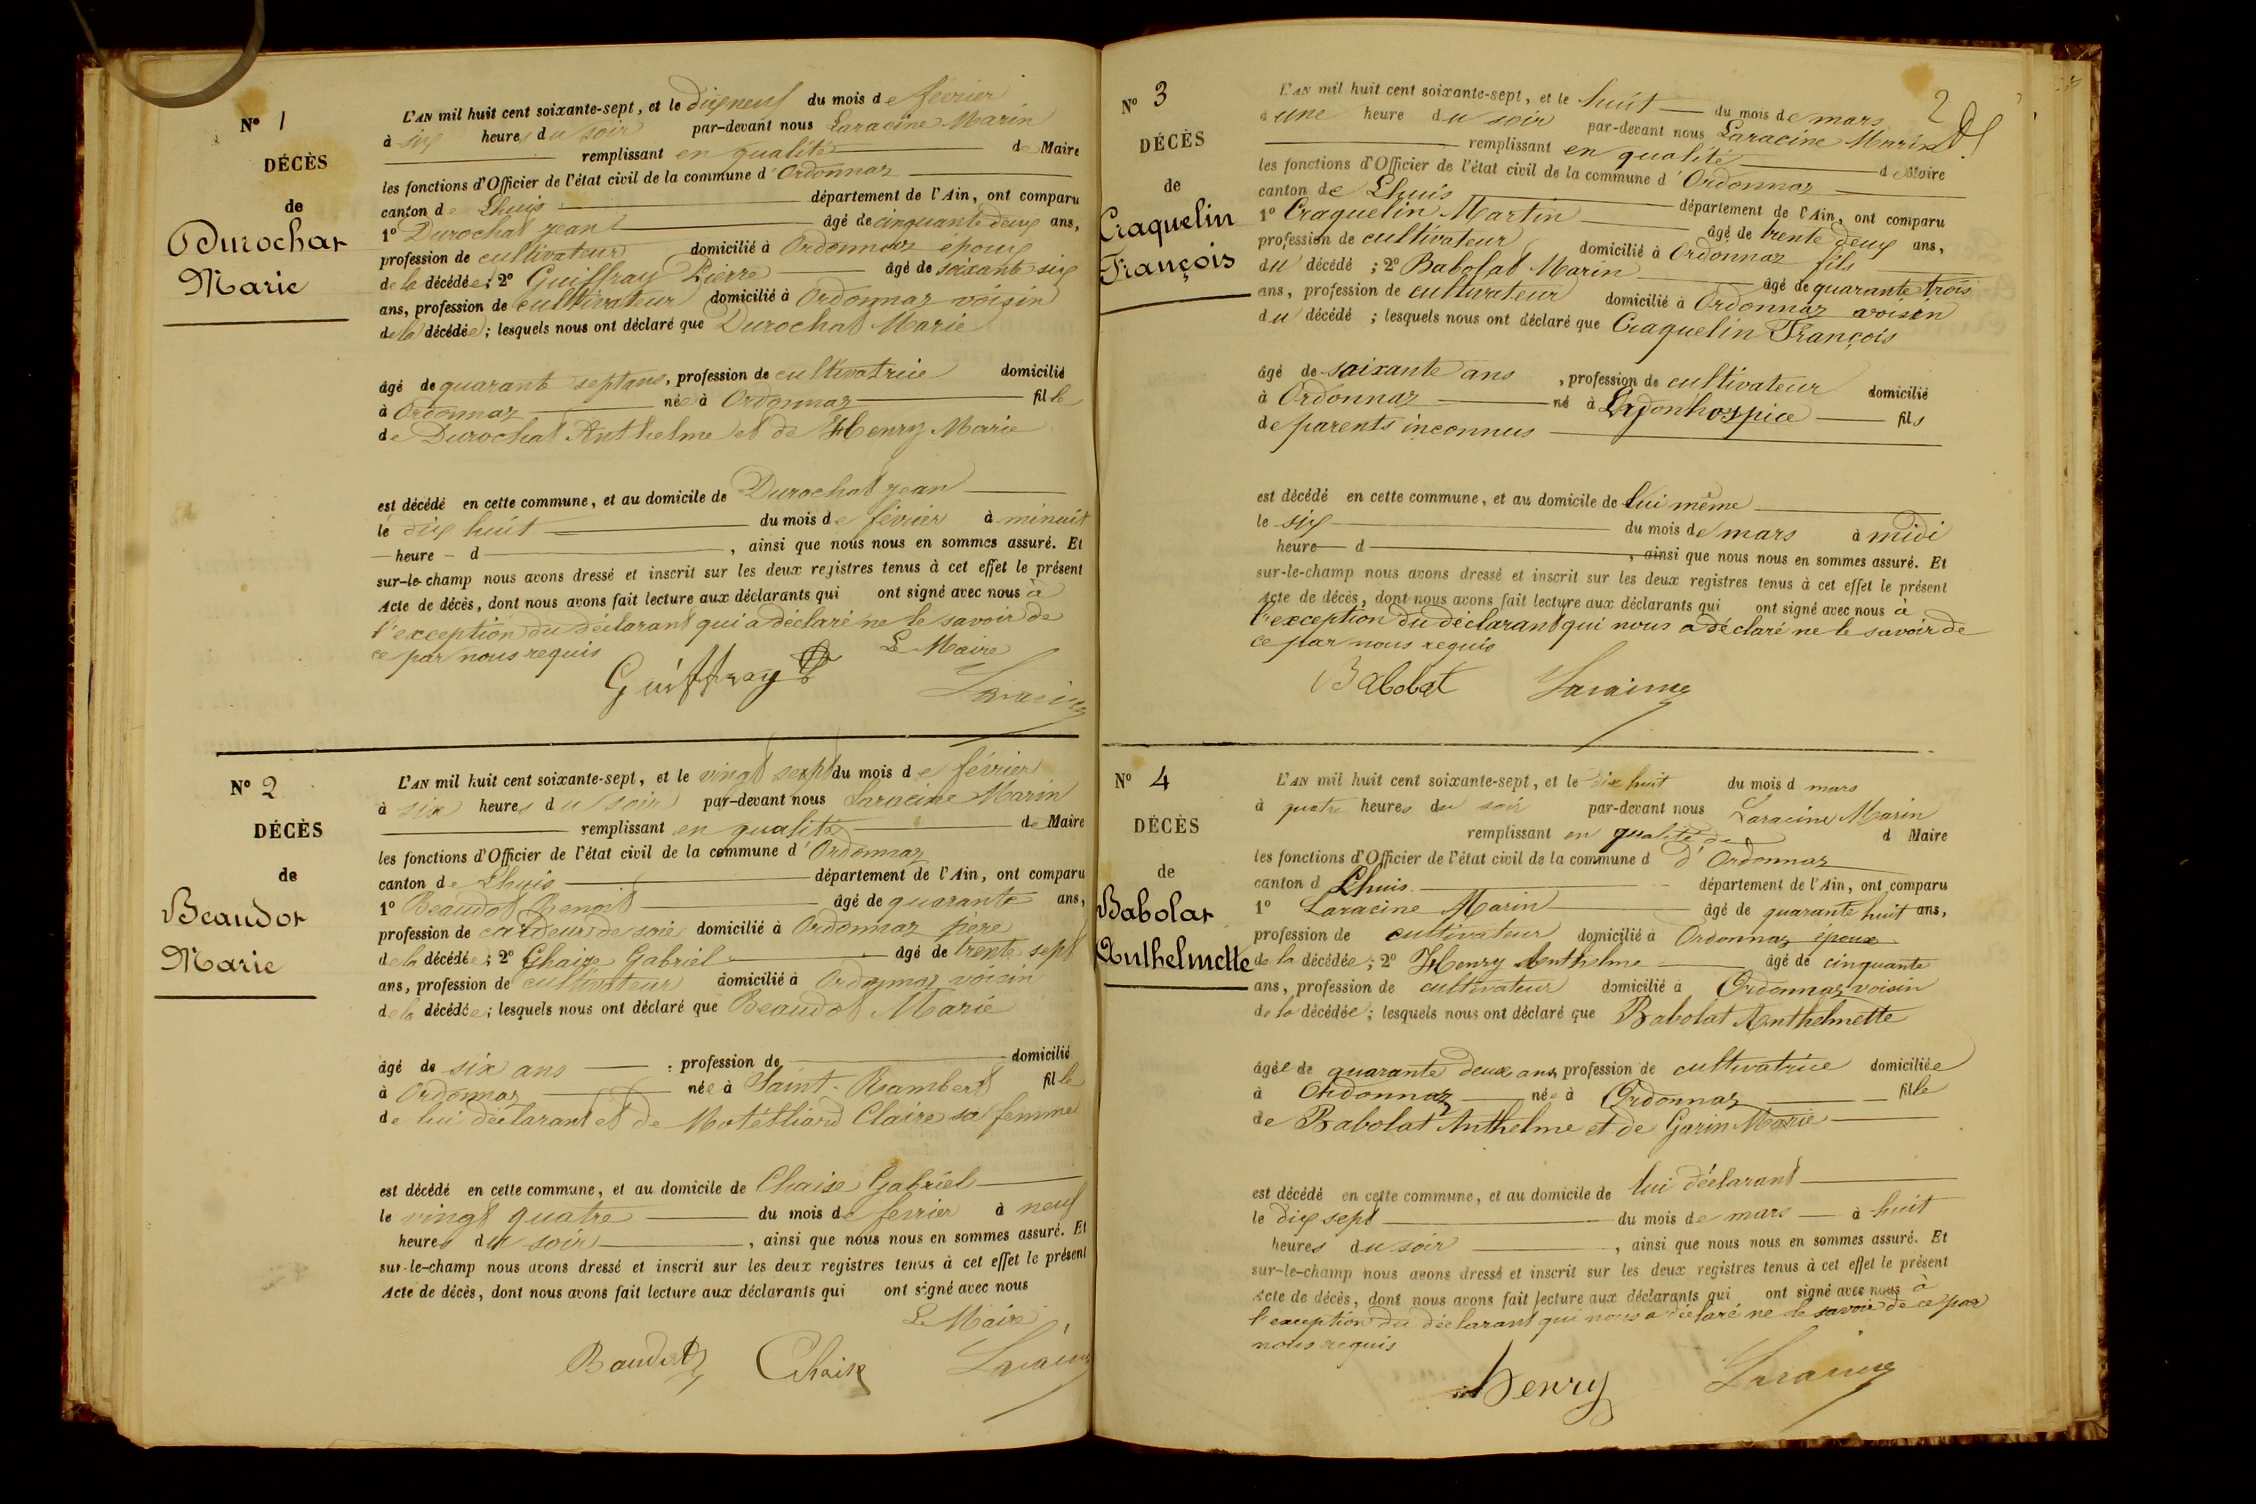 N° 1
DÉCÈS
de
Durochat
Marie
L'AN mil huit cent soixante-sept, et le dix neuf du mois de février
à six heures du soir par-devant nous Laracine Marin
remplissant en qualité de Maire
les fonctions d'Officier de l'état civil de la commune d'Ordonnaz
canton de Lhuis département de l'Ain, ont comparu
1° Durochat jean âgé de cinquante deux ans,
profession de cultivateur domicilié à Ordonnaz epoux
de la décédée; 2° Guiffray Pierre âgé de soixante six
ans, profession de cultivateur domicilié à Ordonnaz voisin
de la décédée; lesquels nous ont déclaré que Durochat Marie
âgé de quarante sept ans, profession de cultivatrice domicilié
à Ordonnaz née à Ordonnaz fille
de Durochat Anthelme et de Henry Marie
est décédé en cette commune, et au domicile de Durochat jean
le dix huit du mois de février à minuit
heure d , ainsi que nous nous en sommes assuré. Et
sur-le-champ nous avons dressé et inscrit sur les deux registres tenus à cet effet le présent
Acte de décès, dont nous avons fait lecture aux déclarants qui ont signé avec nous à
l'exception du déclarant qui a déclaré ne le savoir de
ce par nous requis Le Maire
Guiffray Laracine
N° 2
DÉCÈS
de
Beaudot
Marie
L'AN mil huit cent soixante-sept, et le vingt sept du mois de février
à six heures du soir par-devant nous Laracine Marin
remplissant en qualité de Maire
les fonctions d'Officier de l'état civil de la commune d'Ordonnaz
canton de Lhuis département de l'Ain, ont comparu
1° Beaudot Benoit âgé de quarante ans,
profession de cardeur de soie domicilié à Ordonnaz père
de la décédée; 2° Chaize Gabriel âgé de trente sept
ans, profession de cultivateur domicilié à Ordonnaz voisin
de la décédée; lesquels nous ont déclaré que Beaudot Marie
âgé de six ans , profession de domicilié
à Ordonnaz née à Saint-Rambert fille
de lui déclarant et de Claire sa femme
est décédé en cette commune, et au domicile de Chaise Gabriel
le vingt quatre du mois de fevrier à neuf
heures du soir , ainsi que nous nous en sommes assuré. Et
sur-le-champ nous avons dressé et inscrit sur les deux registres tenus à cet effet le présent
Acte de décès, dont nous avons fait lecture aux déclarants qui ont signé avec nous
Le Maire
Baudot Chaise Laracine
2
N° 3
DÉCÈS
de
Craquelin
François
L'AN mil huit cent soixante-sept, et le huit du mois de mars
à une heure du soir par-devant nous Laracine Marin
remplissant en qualité de Maire
les fonctions d'Officier de l'état civil de la commune d'Ordonnaz
canton de Lhuis département de l'Ain, ont comparu
1° Craquelin Martin âgé de trente deux ans,
profession de cultivateur domicilié à Ordonnaz fils
du décédé; 2° Babolat Marin âgé de quarante trois
ans, profession de cultivateur domicilié à Ordonnaz voisin
du décédé; lesquels nous ont déclaré que Craquelin François
âgé de soixante ans , profession de cultivateur domicilié
à Ordonnaz né à hospice fils
de parents inconnus
est décédé en cette commune, et au domicile de lui même
le six du mois de mars à midi
heure d , ainsi que nous nous en sommes assuré. Et
sur-le-champ nous avons dressé et inscrit sur les deux registres tenus à cet effet le présent
Acte de décès, dont nous avons fait lecture aux déclarants qui ont signé avec nous à
l'exception du déclarant qui nous a déclaré ne le savoir de
ce par nous requis
Babolat Laracine
N° 4
DÉCÈS
de
Babolat
Anthelmette
L'AN mil huit cent soixante-sept, et le dix huit du mois d mars
à quatre heures du soir par-devant nous Laracine Marin
remplissant en qualité de d Maire
les fonctions d'Officier de l'état civil de la commune d d'Ordonnaz
canton d Lhuis département de l'Ain, ont comparu
1° Laracine Marin âgé de quarante huit ans,
profession de cultivateur domicilié à Ordonnaz époux
de la décédée; 2° Henry Anthelme âgé de cinquante
ans, profession de cultivateur domicilié à Ordonnaz voisin
de la décédée; lesquels nous ont déclaré que Babolat Anthelmette
âgée de quarante deux ans, profession de cultivatrice domiciliée
à Ordonnaz née à Ordonnaz fille
de Babolat Anthelme et de Garin Marie
est décédé en cette commune, et au domicile de lui déclarant
le dix sept du mois de mars à huit
heures du soir , ainsi que nous nous en sommes assuré. Et
sur-le-champ nous avons dressé et inscrit sur les deux registres tenus à cet effet le présent
Acte de décès, dont nous avons fait lecture aux déclarants qui ont signé avec nous à
l'exception du déclarant qui nous a déclaré ne le savoir de ce par
nous requis
Henry Laracine